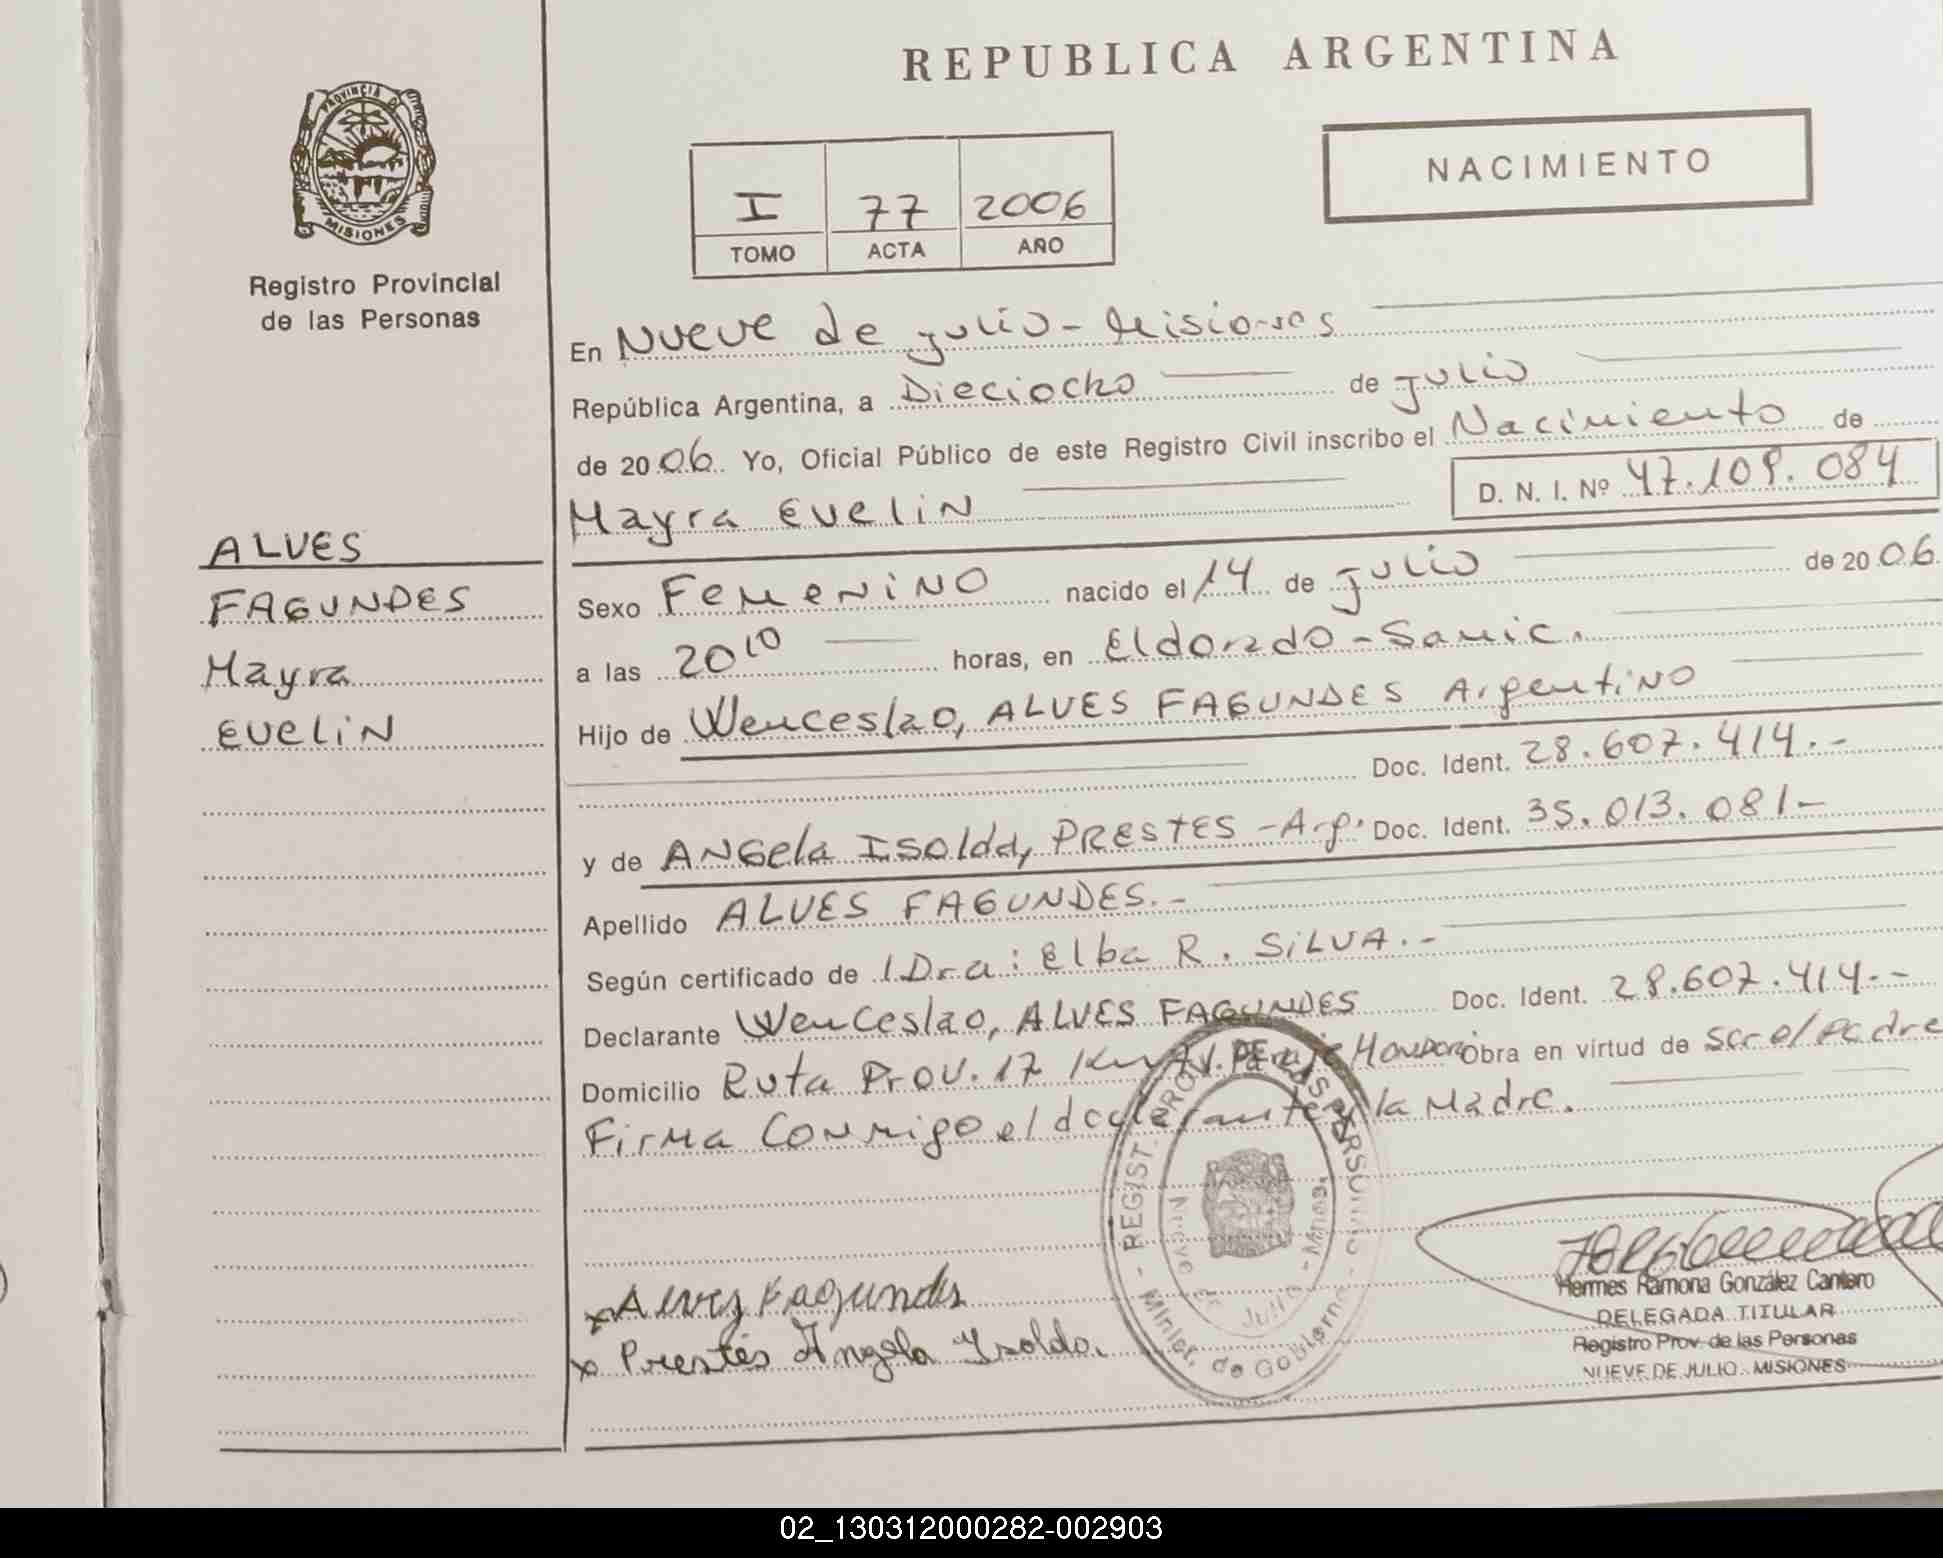 REPUBLICA ARGENTINA
PROVINCIA D
MISIONES
Registro Provincial
de las Personas
NACIMIENTO
I 77 2006
TOMO ACTA AÑO
En Nueve de julio - Misiones
República Argentina, a Dieciocho de julio
de 2006. Yo, Oficial Público de este Registro Civil inscribo el Nacimiento de
Mayra Evelin
D. N. I. Nº 47.109.084
ALVES
FAGUNDES
Mayra
Evelin
Sexo Femenino nacido el 14 de julio de 2006.
a las 20 10 horas, en Eldorado - Samic.
Hijo de Wenceslao, ALVES FAGUNDES Argentino
Doc. Ident. 28.607.414.-
y de ANGela Isolda, PRESTES - Arg. Doc. Ident. 35.013.081-
Apellido ALVES FAGUNDES.-
Según certificado de Dra: Elba R. SILVA.-
Declarante Wenceslao, ALVES FAGUNDES Doc. Ident. 28.607.414.-
Domicilio Ruta Prov. 17 Km Obra en virtud de ser el Padre
Firma Conmigo el declarante la Madre.
REGIST. PROV. DE LAS PERSONAS
Nueve de Julio - Mnes.
Minist. de Gobierno
x Alves Fagundes
x Prestes Angela Isolda.
Hermes Ramona González Cantero
DELEGADA TITULAR
Registro Prov. de las Personas
NUEVE DE JULIO - MISIONES
02_130312000282-002903